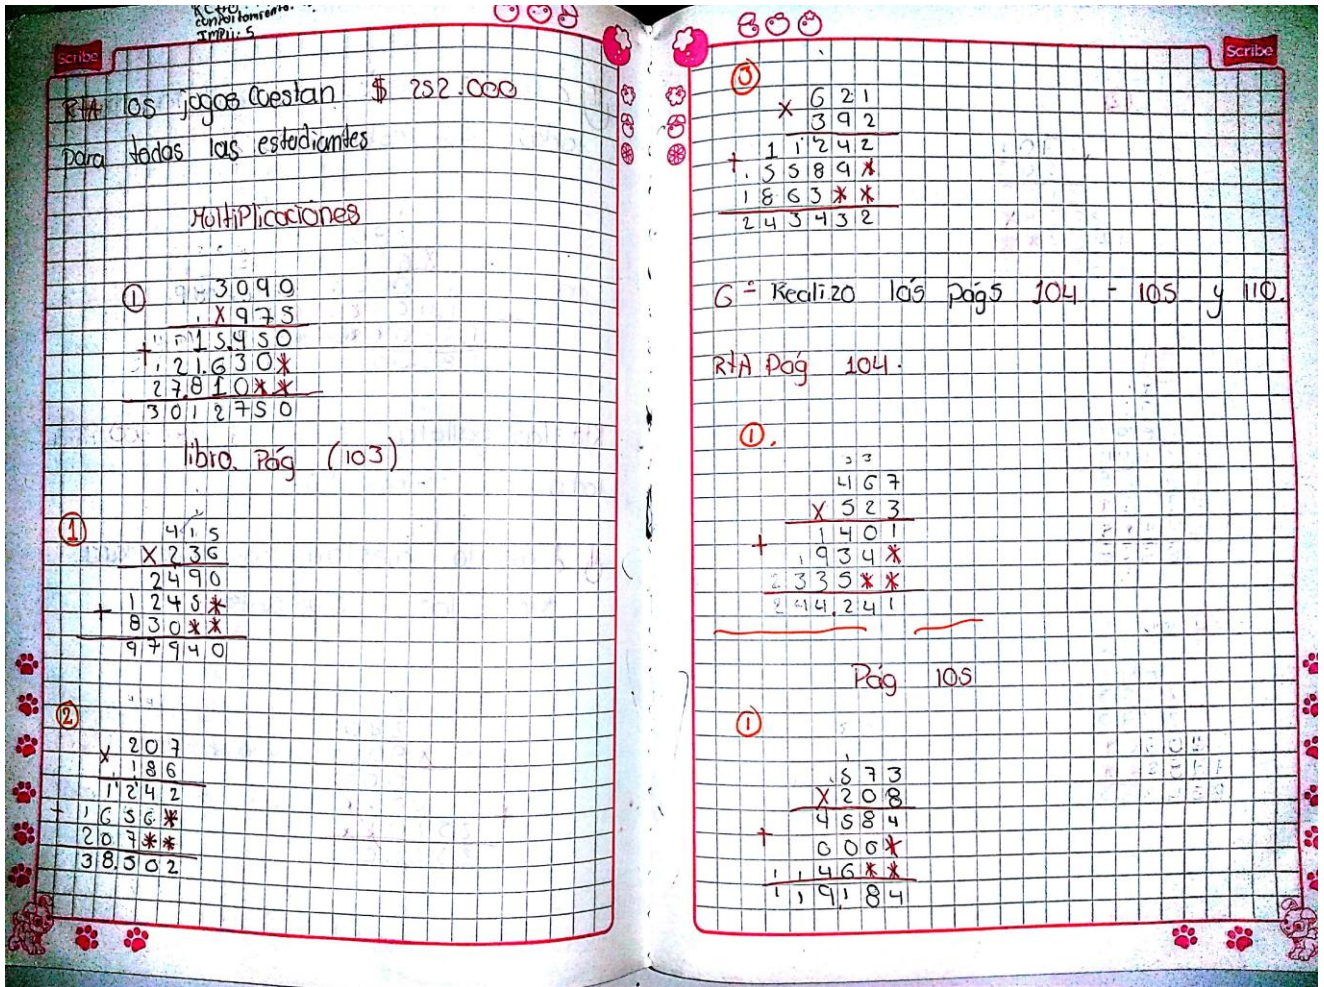 comportamiento.
Scribe
RtA los jogos Cuestan $ 252.000
para todas las estudiantes
Multiplicaciones
①
3090
X975
+ 15.450
21.630*
27.810**
3012750
libro. Pág (103)
①
415
X236
2490
+ 1245*
830**
97940
②
X 207
186
1242
+ 1656*
207**
38.502
Scribe
③
X 621
392
+ 11242
5589*
1863**
243432
G - Realizo las págs 104 - 105 y 110.
RtA Pág 104.
①.
33
467
X 523
+ 1401
934*
2335**
244.241
Pág 105
①
573
X208
+ 4584
000*
1146**
119184